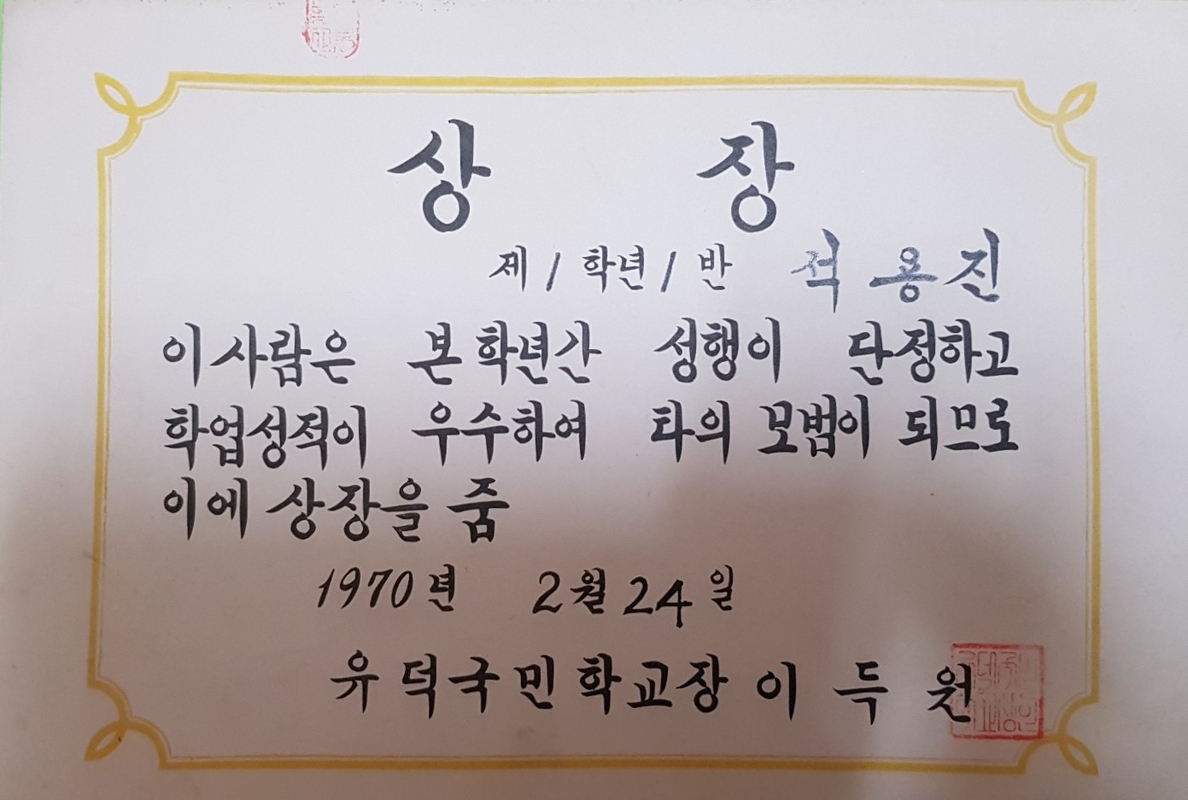 상 장
제 1 학년 1 반 석 용 진
이 사람은 본 학년간 성행이 단정하고
학업성적이 우수하여 타의 모범이 되므로
이에 상장을 줌
1970년 2월 24일
유덕국민학교장 이 득 원